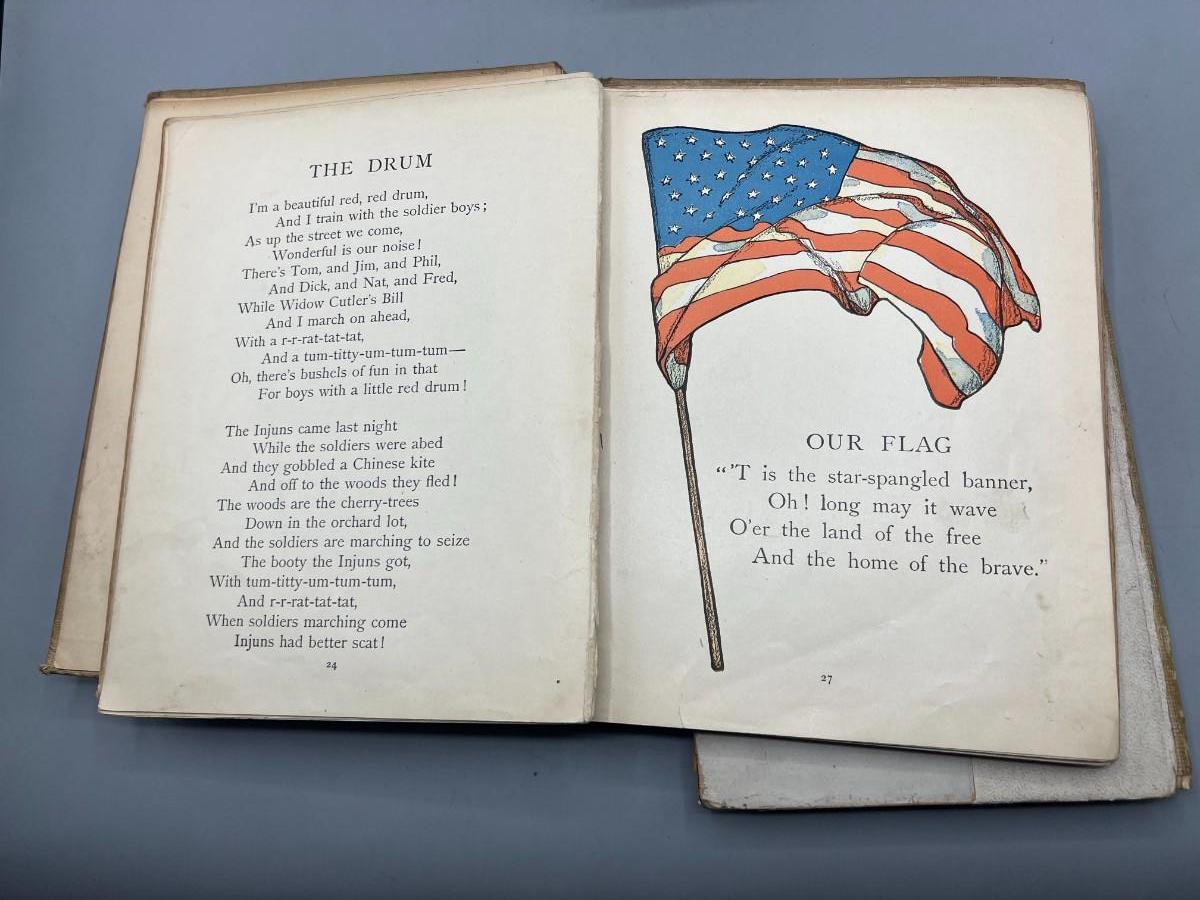 THE DRUM
I'm a beautiful red, red drum,
And I train with the soldier boys;
As up the street we come,
Wonderful is our noise!
There's Tom, and Jim, and Phil,
And Dick, and Nat, and Fred,
While Widow Cutler's Bill
And I march on ahead,
With a r-r-rat-tat-tat,
And a tum-titty-um-tum-tum—
Oh, there's bushels of fun in that
For boys with a little red drum!
The Injuns came last night
While the soldiers were abed
And they gobbled a Chinese kite
And off to the woods they fled!
The woods are the cherry-trees
Down in the orchard lot,
And the soldiers are marching to seize
The booty the Injuns got,
With tum-titty-um-tum-tum,
And r-r-rat-tat-tat,
When soldiers marching come
Injuns had better scat!
24
OUR FLAG
"'T is the star-spangled banner,
Oh! long may it wave
O'er the land of the free
And the home of the brave."
27